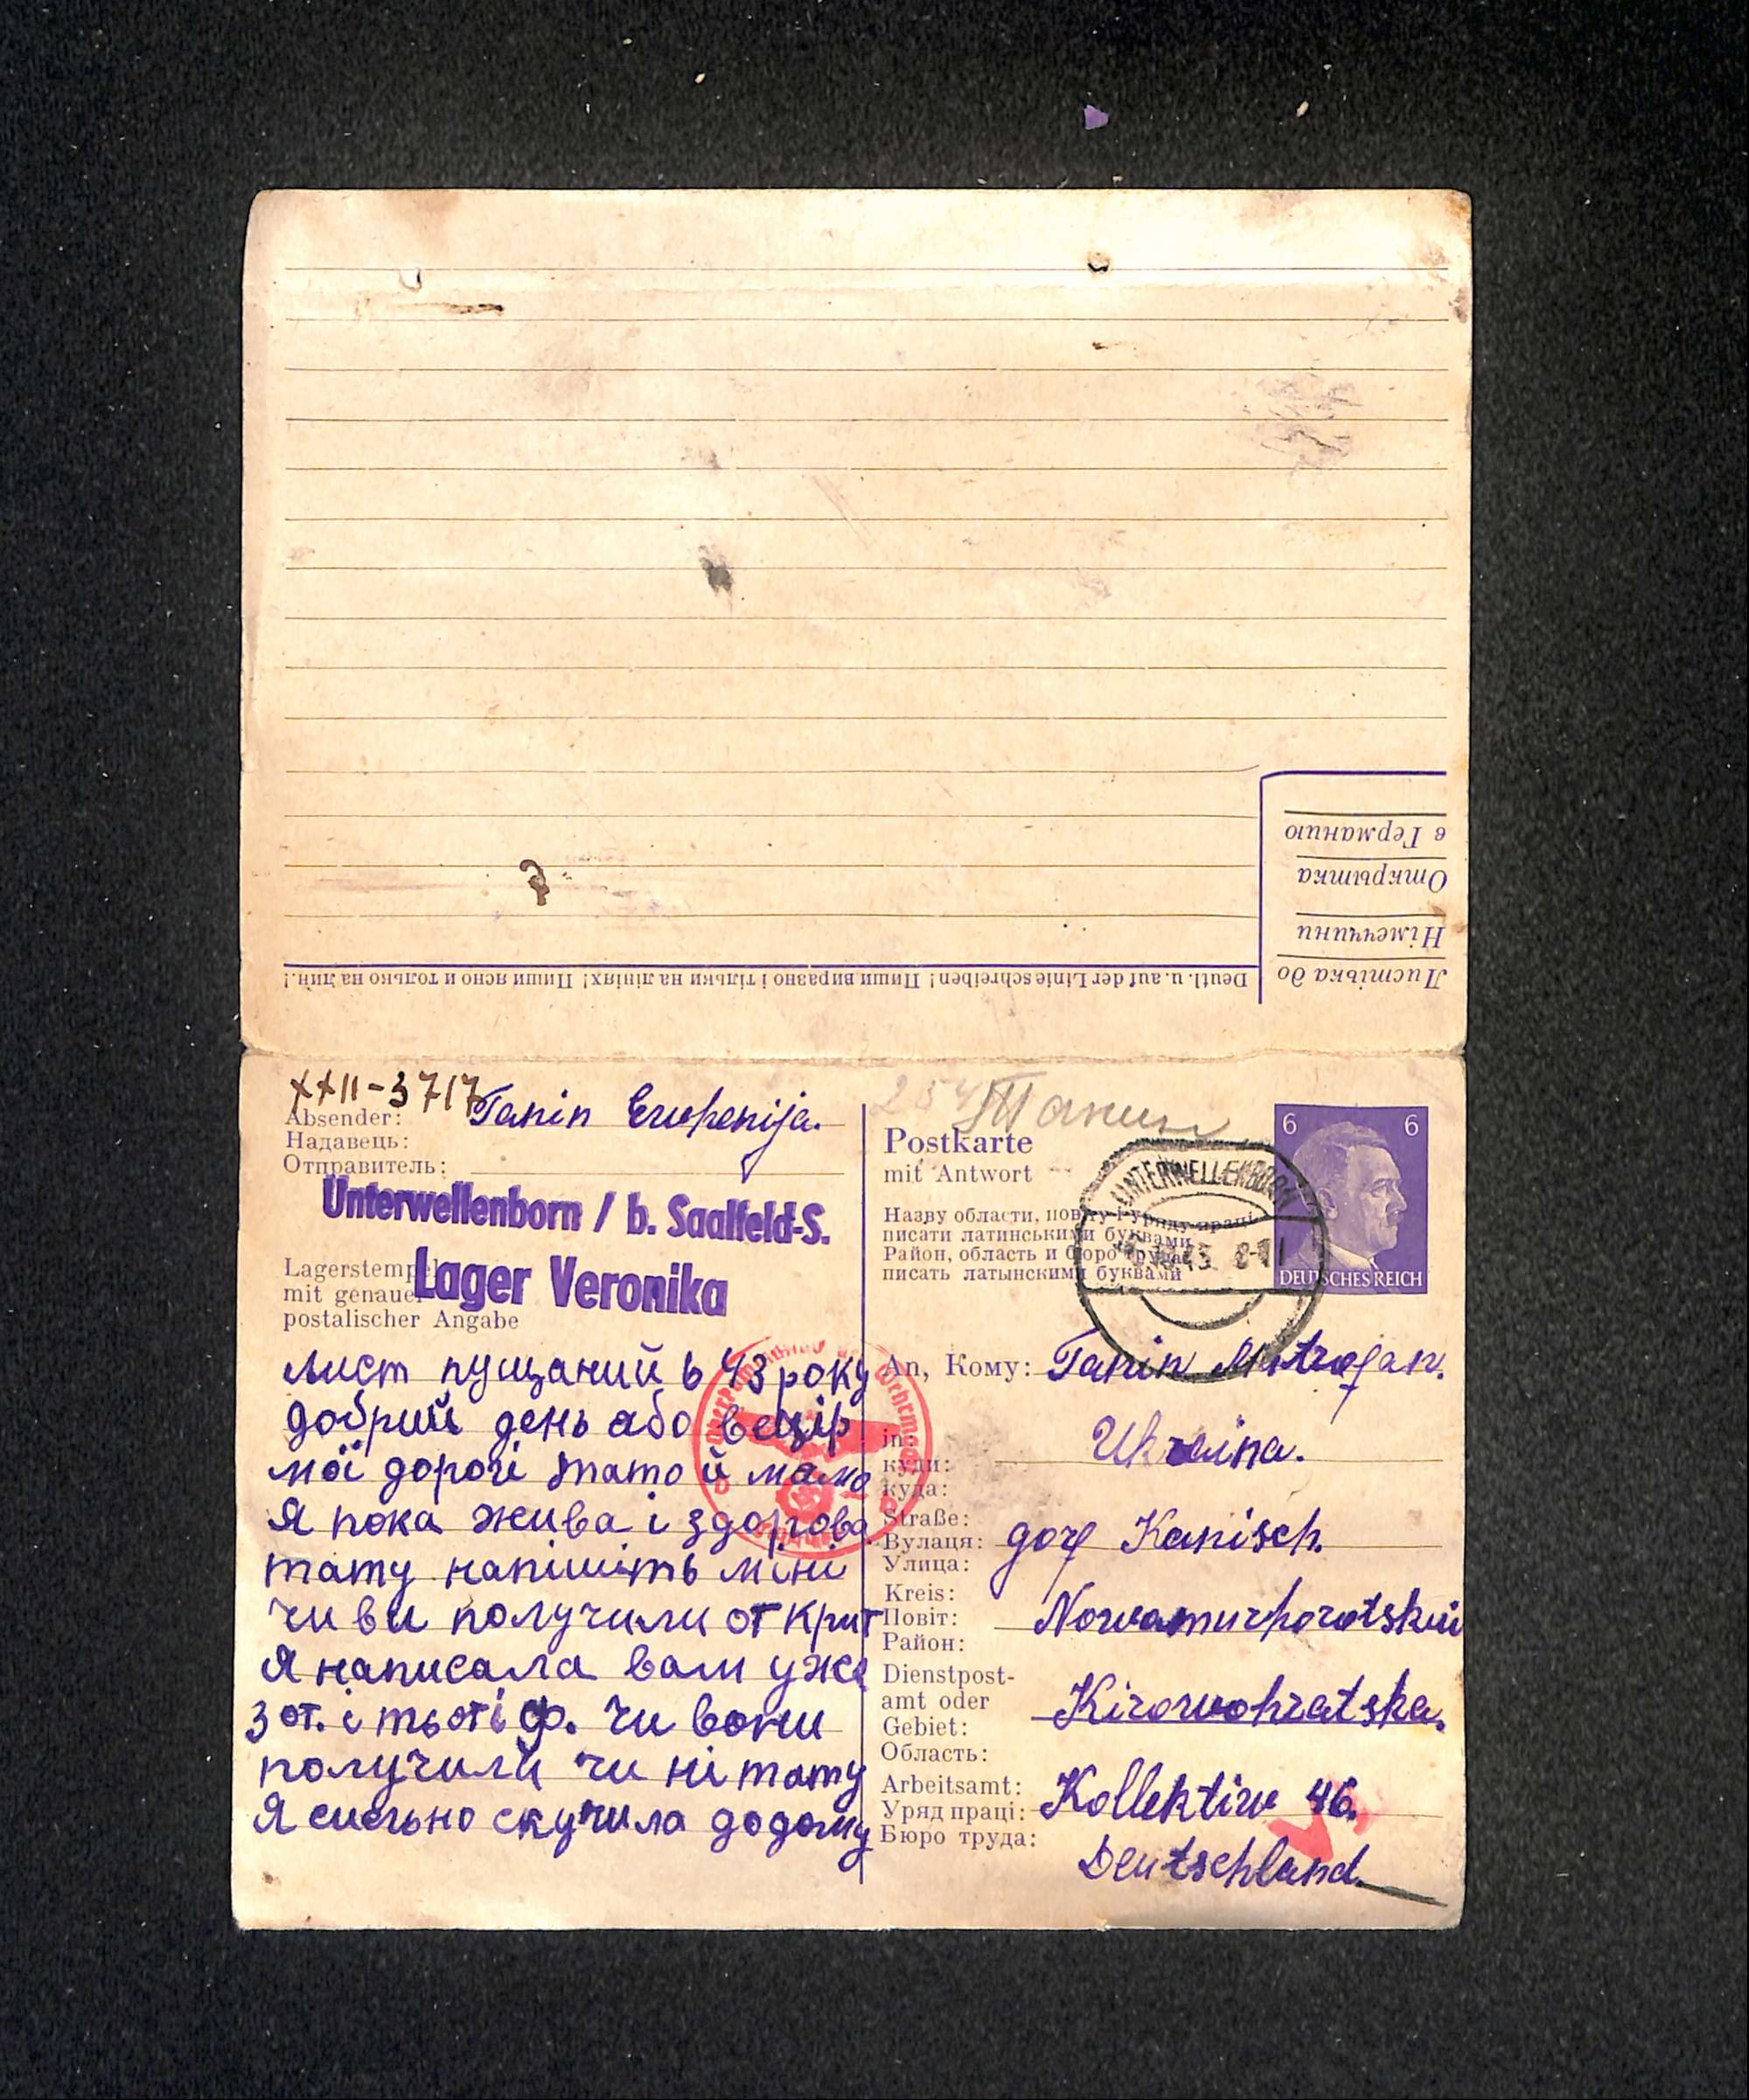 Листівка до
Німеччини
Открытка
в Германию
Deutl. u. auf der Linie schreiben! Пиши виразно і тільки на лініях! Пиши ясно и только на лин.!
XXII-3717
Absender: Tanin Ewhenija.
Надавець:
Отправитель:
Unterwellenborn / b. Saalfeld-S.
Lagerstempel
mit genauer
postalischer Angabe
Lager Veronika
лист пущаний в 43 року
добрий день або вечір
мої дорогі тато й мамо
Я пока жива і здорова
тату напішить міні
чи ви получили открит
Я написала вам уже
3 от. і тьоті ф. чи вони
получили чи ні тату
Я сильно скучила додому
254 Танин
Postkarte
mit Antwort
Назву области, повіту і уряду праці
писати латинськими буквами
Район, область и бюро труда
писать латынскими буквами
UNTERWELLENBORN
43 8-11
6 6
DEUTSCHES REICH
An, Кому: Tanin Mitrofan.
in:
куди:
куда:
Ukraina.
Straße:
Вулаця:
Улица:
Kanisch.
Kreis:
Повіт:
Район:
Nowamurhorotskii
Dienstpost-
amt oder
Gebiet:
Область:
Kirowohratska.
Arbeitsamt:
Уряд праці:
Бюро труда:
Kollektiw 46.
Deutschland.